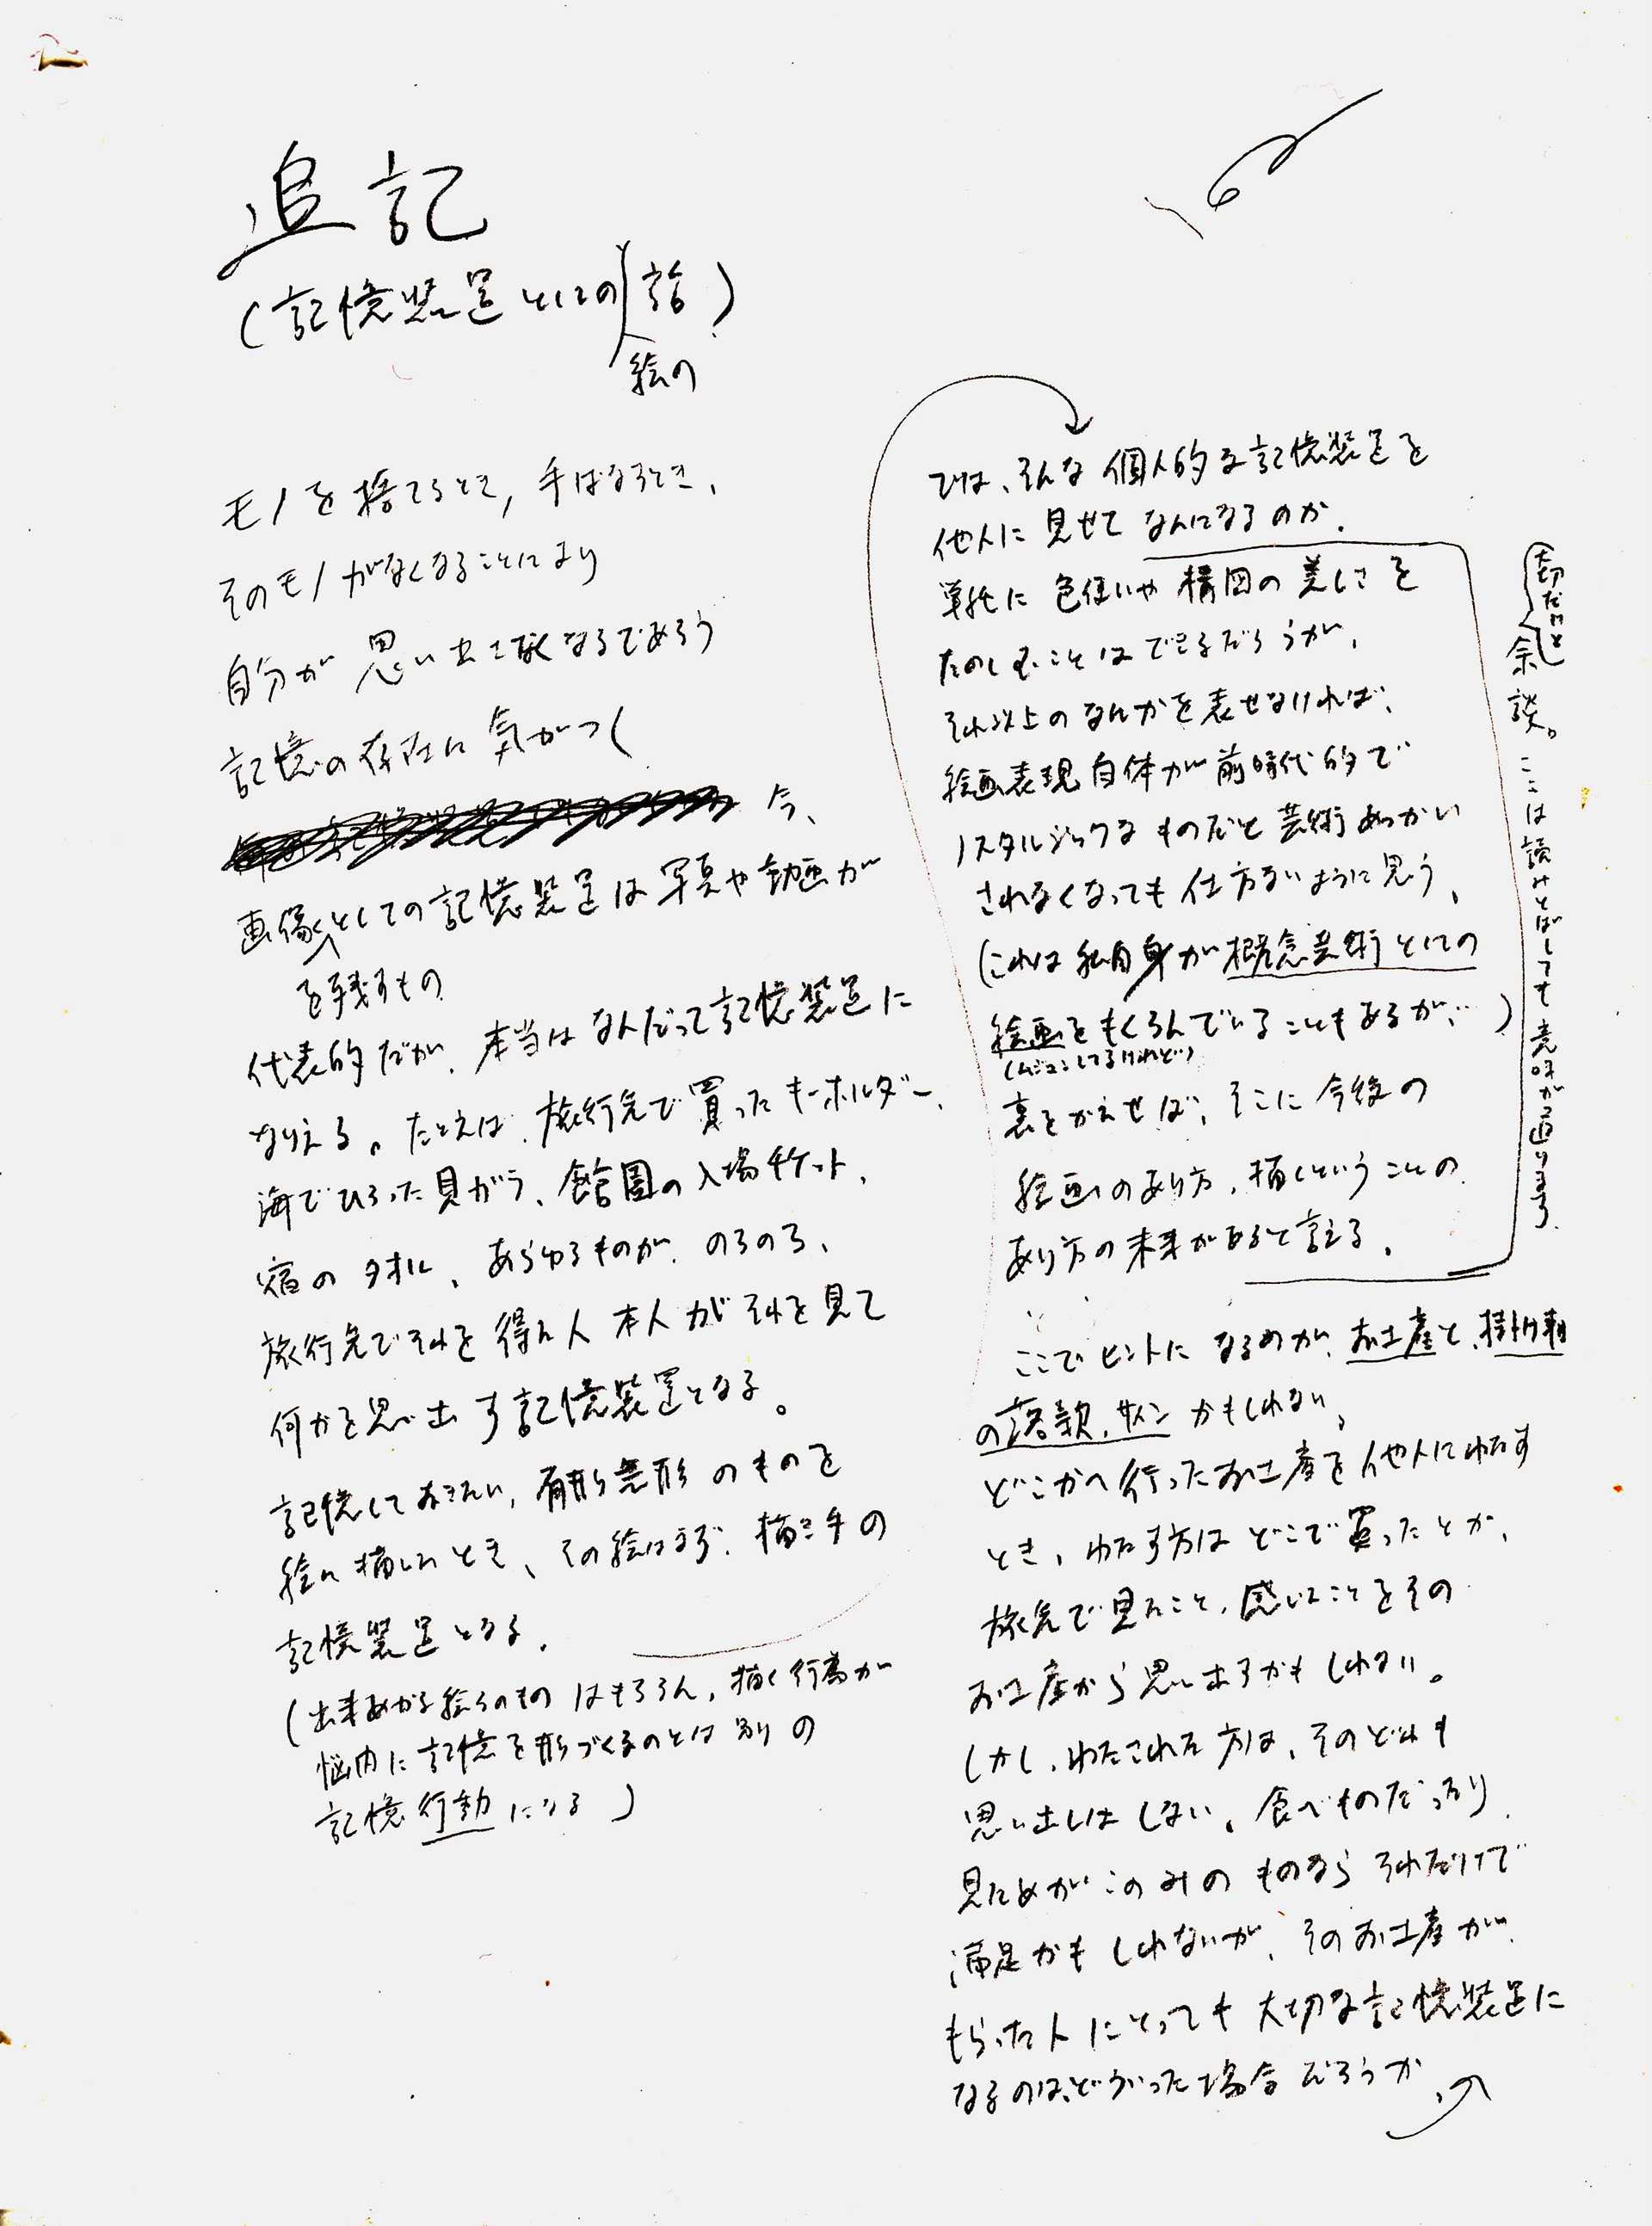 追記
(記憶装置としての絵の話)
モノを捨てるとき、手ばなすとき、
そのモノがなくなることにより
自分が思い出さなくなるであろう
記憶の存在に気がつく
今、
画像を残すものとしての記憶装置は写真や動画が
代表的だが、本当はなんだって記憶装置に
なりえる。たとえば、旅行先で買ったキーホルダー、
海でひろった貝がら、動物園の入場チケット、
宿のタオル、あらゆるものが、のちのち、
旅行先でそれを得た人本人がそれを見て
何かを思い出す記憶装置となる。
記憶しておきたい、有形無形のものを
絵に描いたとき、その絵はまず、描き手の
記憶装置となる。
(出来あがる絵そのものはもちろん、描く行為が
脳内に記憶を形づくるのとは別の
記憶行動になる)
では、そんな個人的な記憶装置を
他人に見せてなんになるのか。
単純に色使いや構図の美しさを
たのしむことはできるだろうが、
それ以上のなんかを表せなければ、
絵画表現自体が前時代的で
ノスタルジックなものだと芸術あつかい
されなくなっても仕方ないように思う。
(これは私自身が概念芸術としての
絵画をもくろんでいることもあるが、…)
(ムジュンしてるけれど)
裏をかえせば、そこに今後の
絵画のあり方、描くということの
あり方の未来があると言える。
大切だけど
余談。ここは読みとばしても意味が通ります。
ここでヒントになるのが、お土産と、掛け軸
の落款、サインかもしれない。
どこかへ行ったお土産を他人にわたす
とき、わたす方はどこで買ったとか、
旅先で見たこと、感じたことをその
お土産から思い出すかもしれない。
しかし、わたされた方は、そのどれも
思い出しはしない。食べものだったり、
見ためがこのみのものならそれだけで
満足かもしれないが、そのお土産が、
もらった人にとっても大切な記憶装置に
なるのは、どういった場合だろうか。